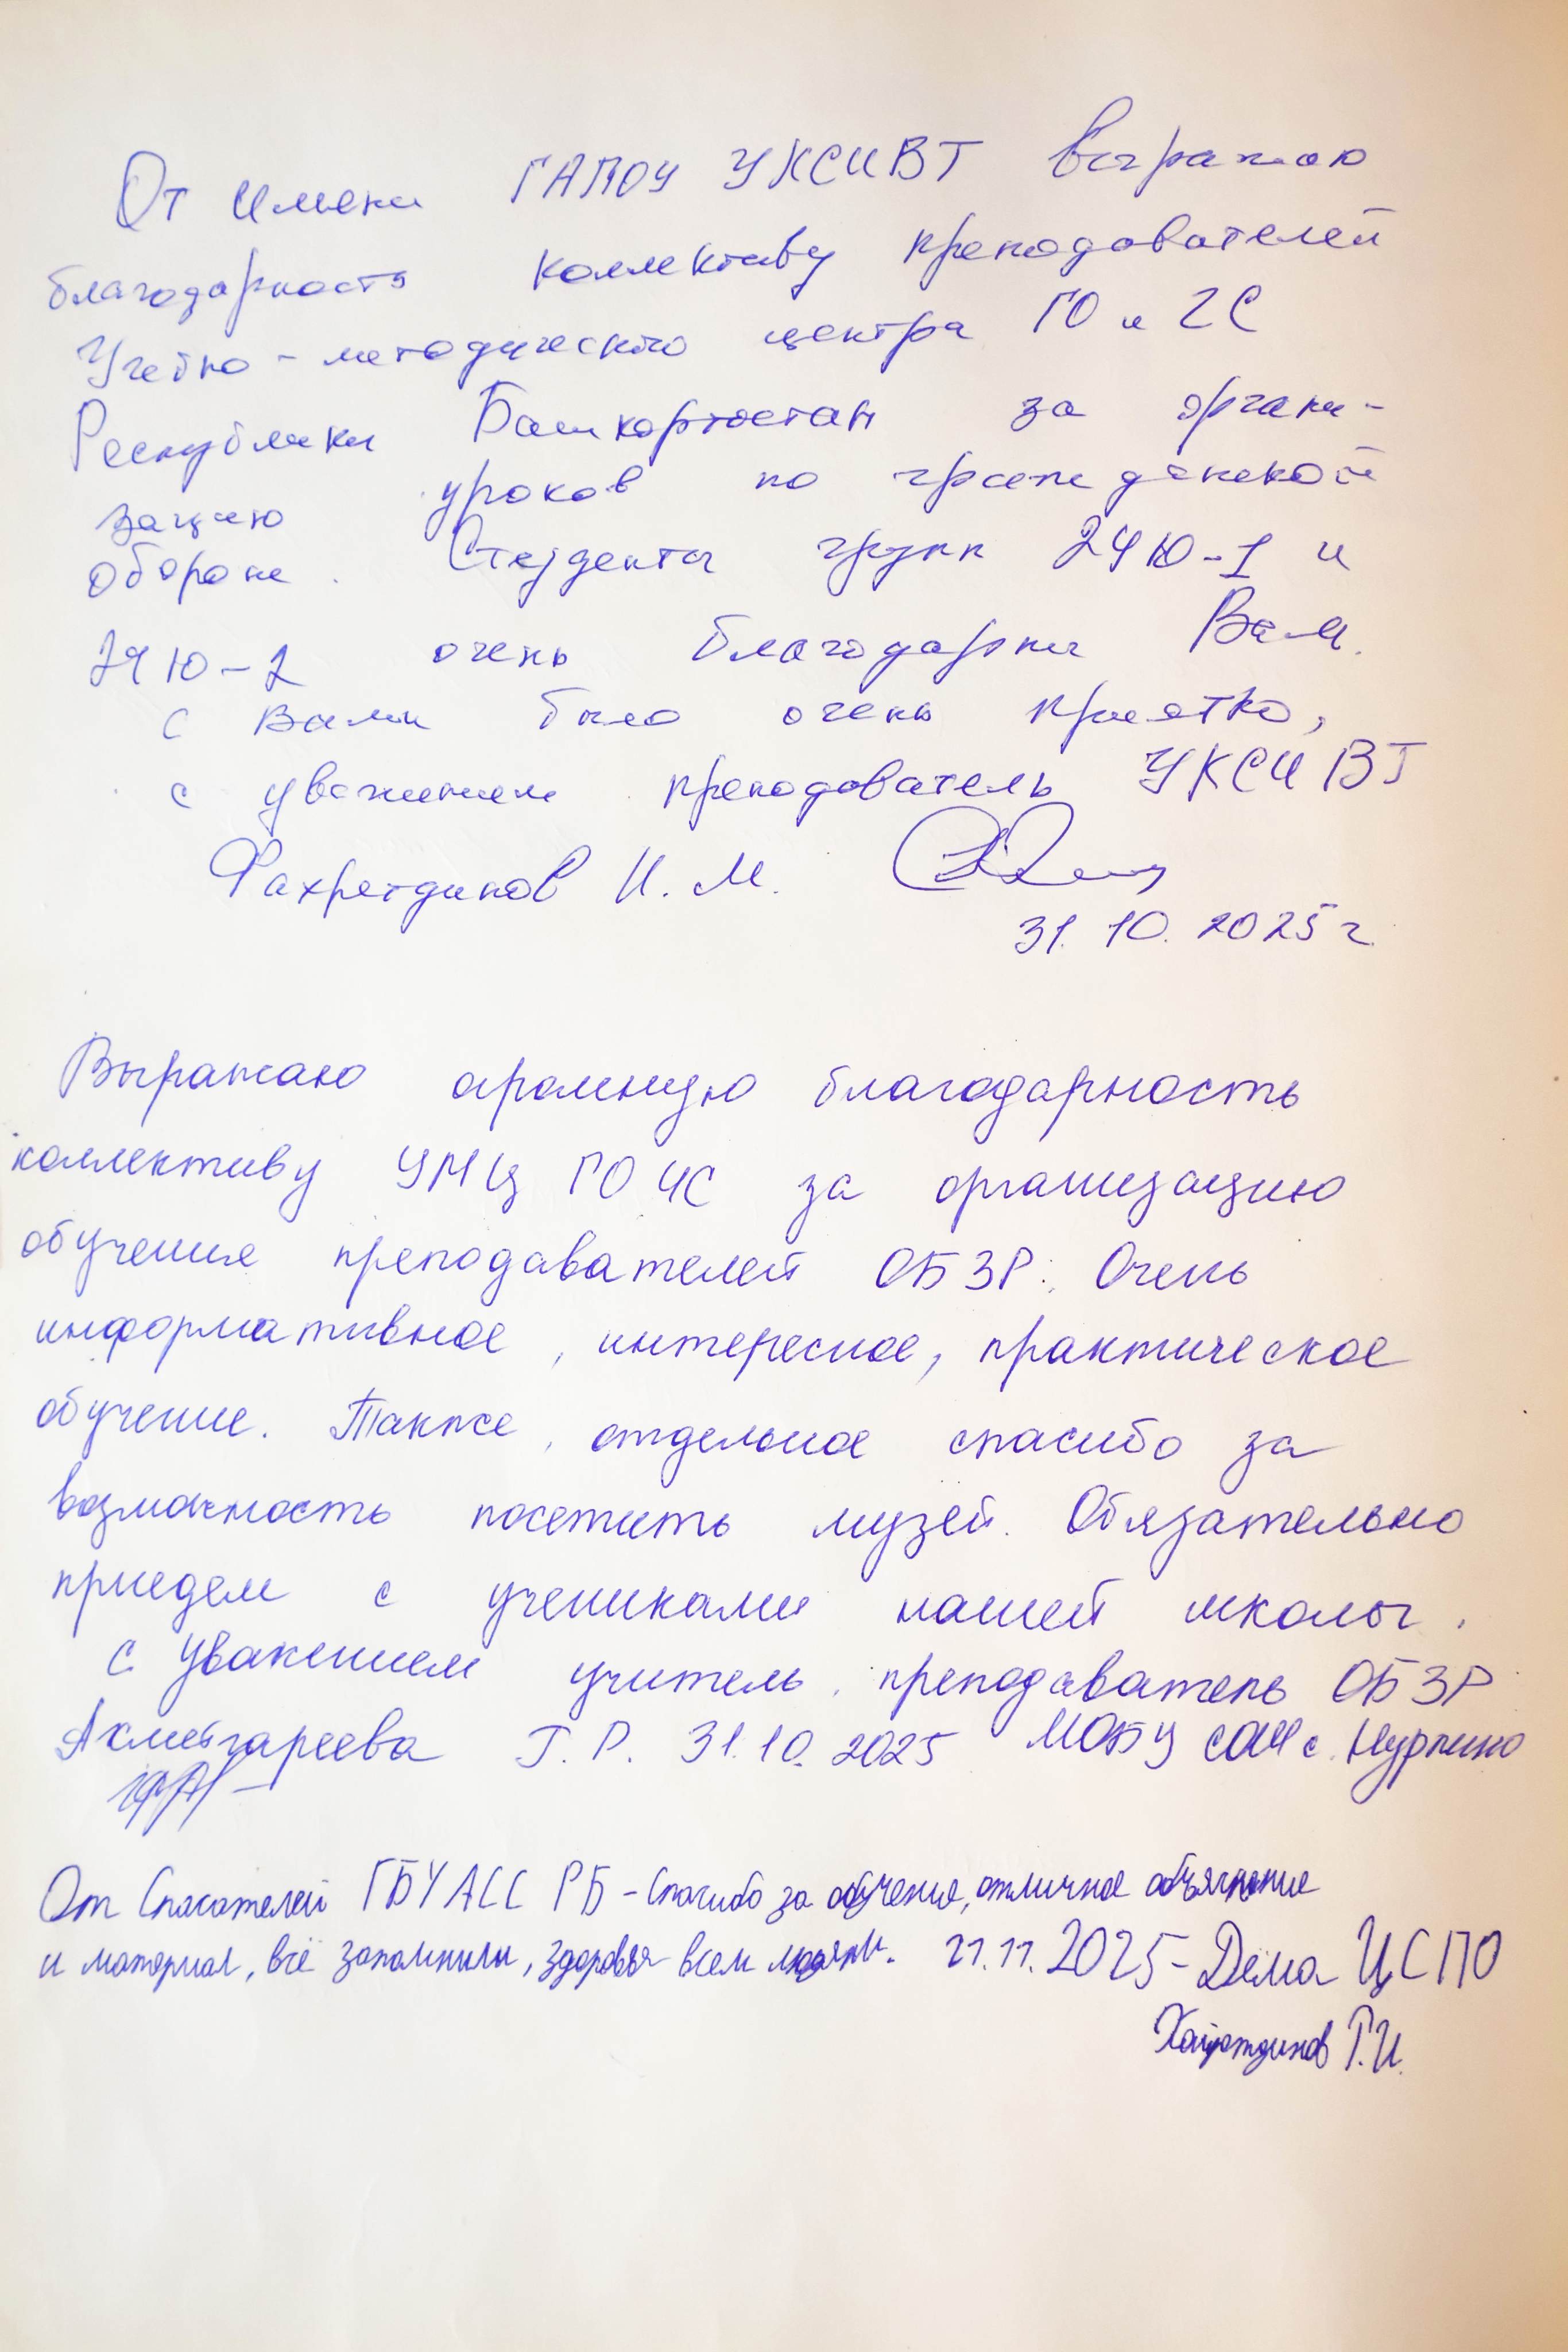 От имени ГАПОУ УКСИВТ выражаю
благодарность коллективу преподователей
Учебно-методического центра ГО и ЧС
Республики Башкортостан за органи-
зацию уроков по гражданской
обороне. Студенты групп 24Ю-1 и
24Ю-2 очень благодарны Вам.
С Вами было очень приятно,
с уважением преподователь УКСИВТ
Фахретдинов И.М.
31.10.2025г.
Выражаю огромную благодарность
коллективу УМЦ ГО ЧС за организацию
обучения преподавателей ОБЗР. Очень
информативное, интересное, практическое
обучение. Также, отдельное спасибо за
возможность посетить музей. Обязательно
приедем с учениками нашей школы.
С уважением учитель, преподаватель ОБЗР
Г.Р. 31.10.2025 МОБУ СОШ с.
От Спасателей ГБУ АСС РБ - Спасибо за обучение, отличное объяснение
и материал, всё запомнили, здоровья всем людям. 21.11.2025 - Дёма ЦСПО
Г.И.